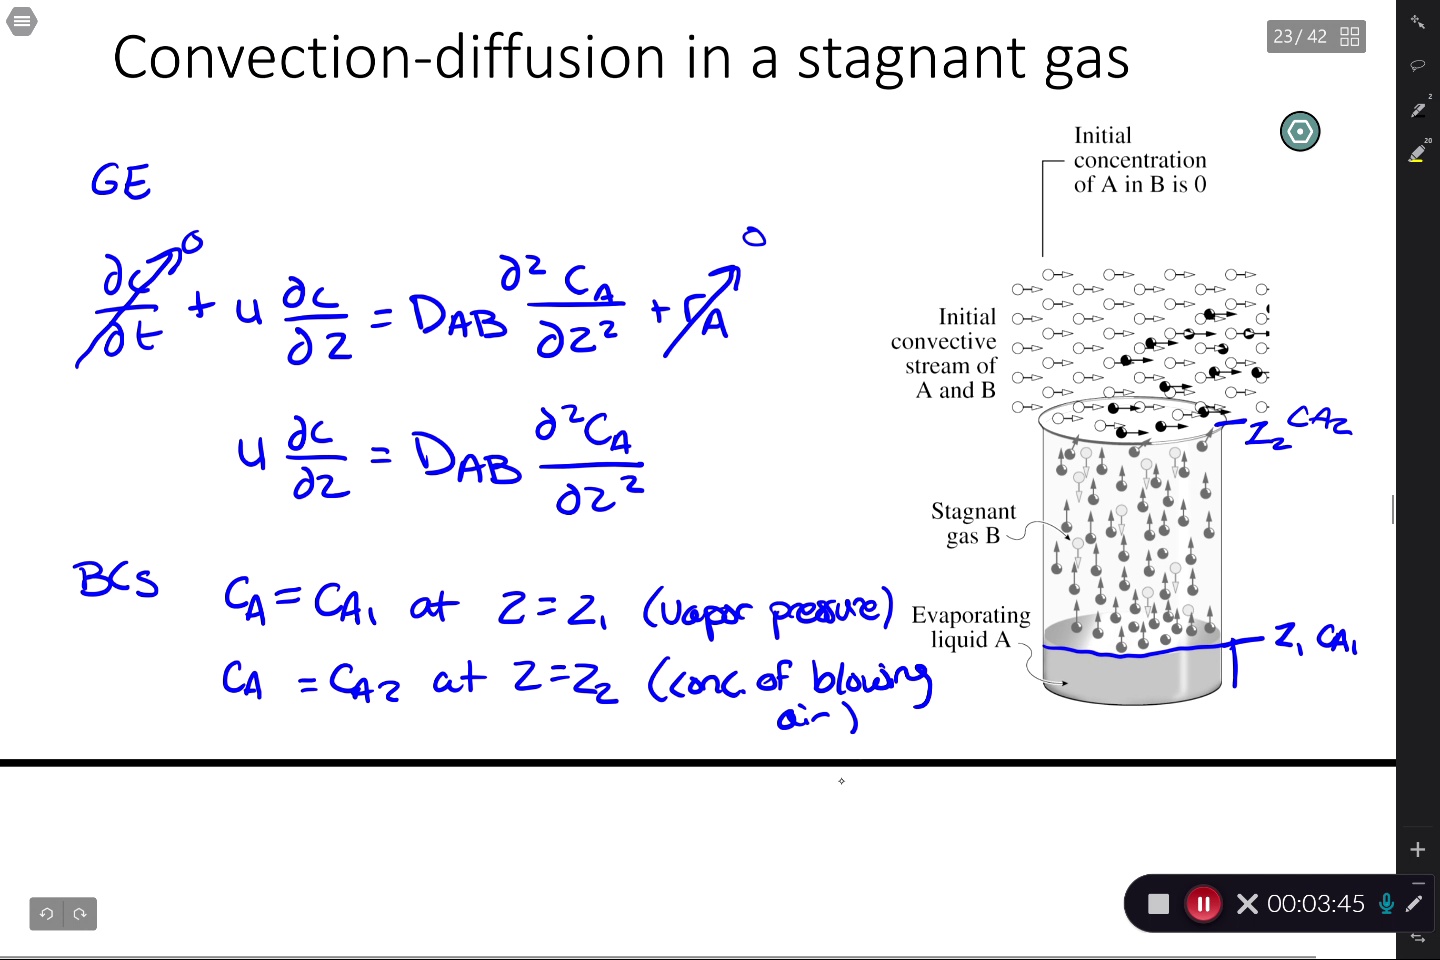 Convection-diffusion in a stagnant gas
23 / 42
GE
∂c/∂t → 0 + u ∂c/∂z = D_AB ∂²C_A/∂z² + r_A → 0
u ∂c/∂z = D_AB ∂²C_A/∂z²
BCs
C_A = C_A1 at z = z_1 (vapor pressure)
C_A = C_A2 at z = z_2 (conc. of blowing
air)
Initial
concentration
of A in B is 0
Initial
convective
stream of
A and B
z_2 C_A2
Stagnant
gas B
Evaporating
liquid A
z_1 C_A1
2
20
00:03:45